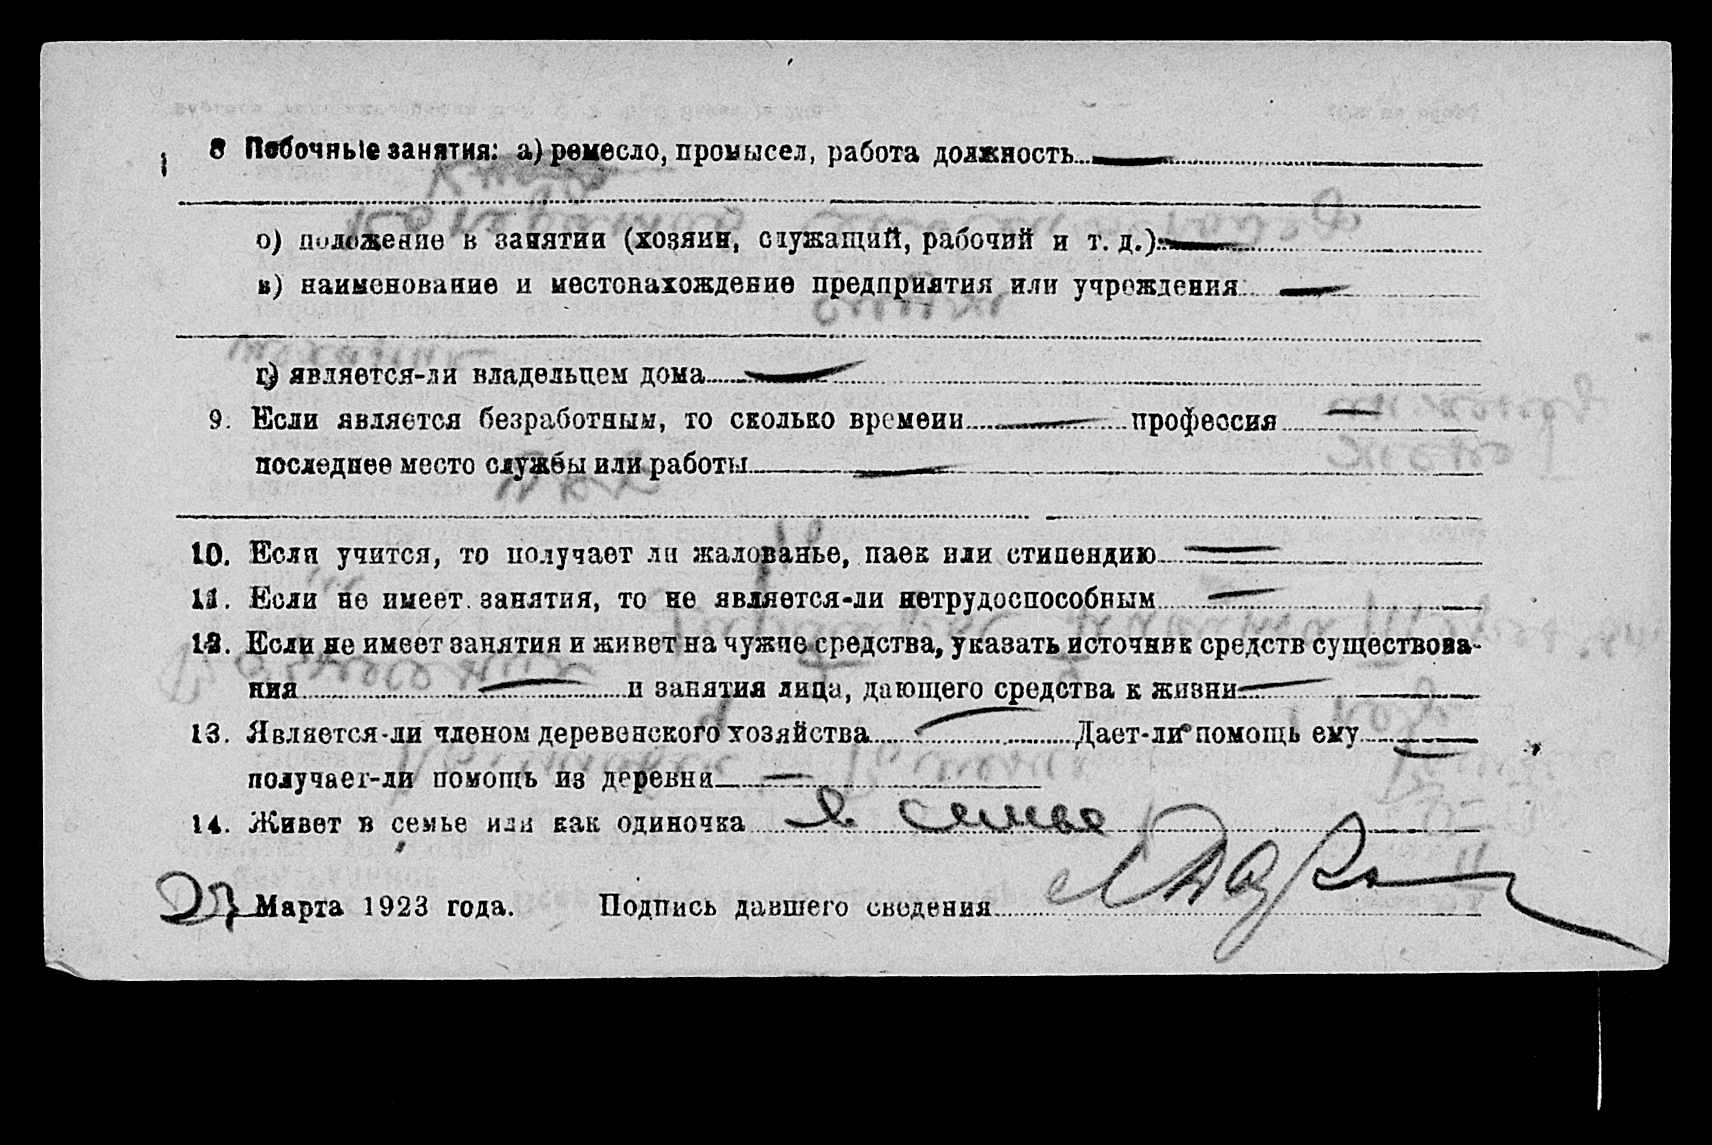 8 Побочные занятия: а) ремесло, промысел, работа должность —
о) положение в занятии (хозяин, служащий, рабочий и т. д.): —
в) наименование и местонахождение предприятия или учреждения: —
г) является-ли владельцем дома —
9. Если является безработным, то сколько времени — профессия —
последнее место службы или работы —
10. Если учится, то получает ли жалованье, паек или стипендию —
11. Если не имеет занятия, то не является-ли нетрудоспособным —
12. Если не имеет занятия и живет на чужие средства, указать источник средств существова-
ния — и занятия лица, дающего средства к жизни —
13. Является-ли членом деревенского хозяйства — Дает-ли помощь ему —
получает-ли помощь из деревни —
14. Живет в семье или как одиночка в семье
27 Марта 1923 года. Подпись давшего сведения